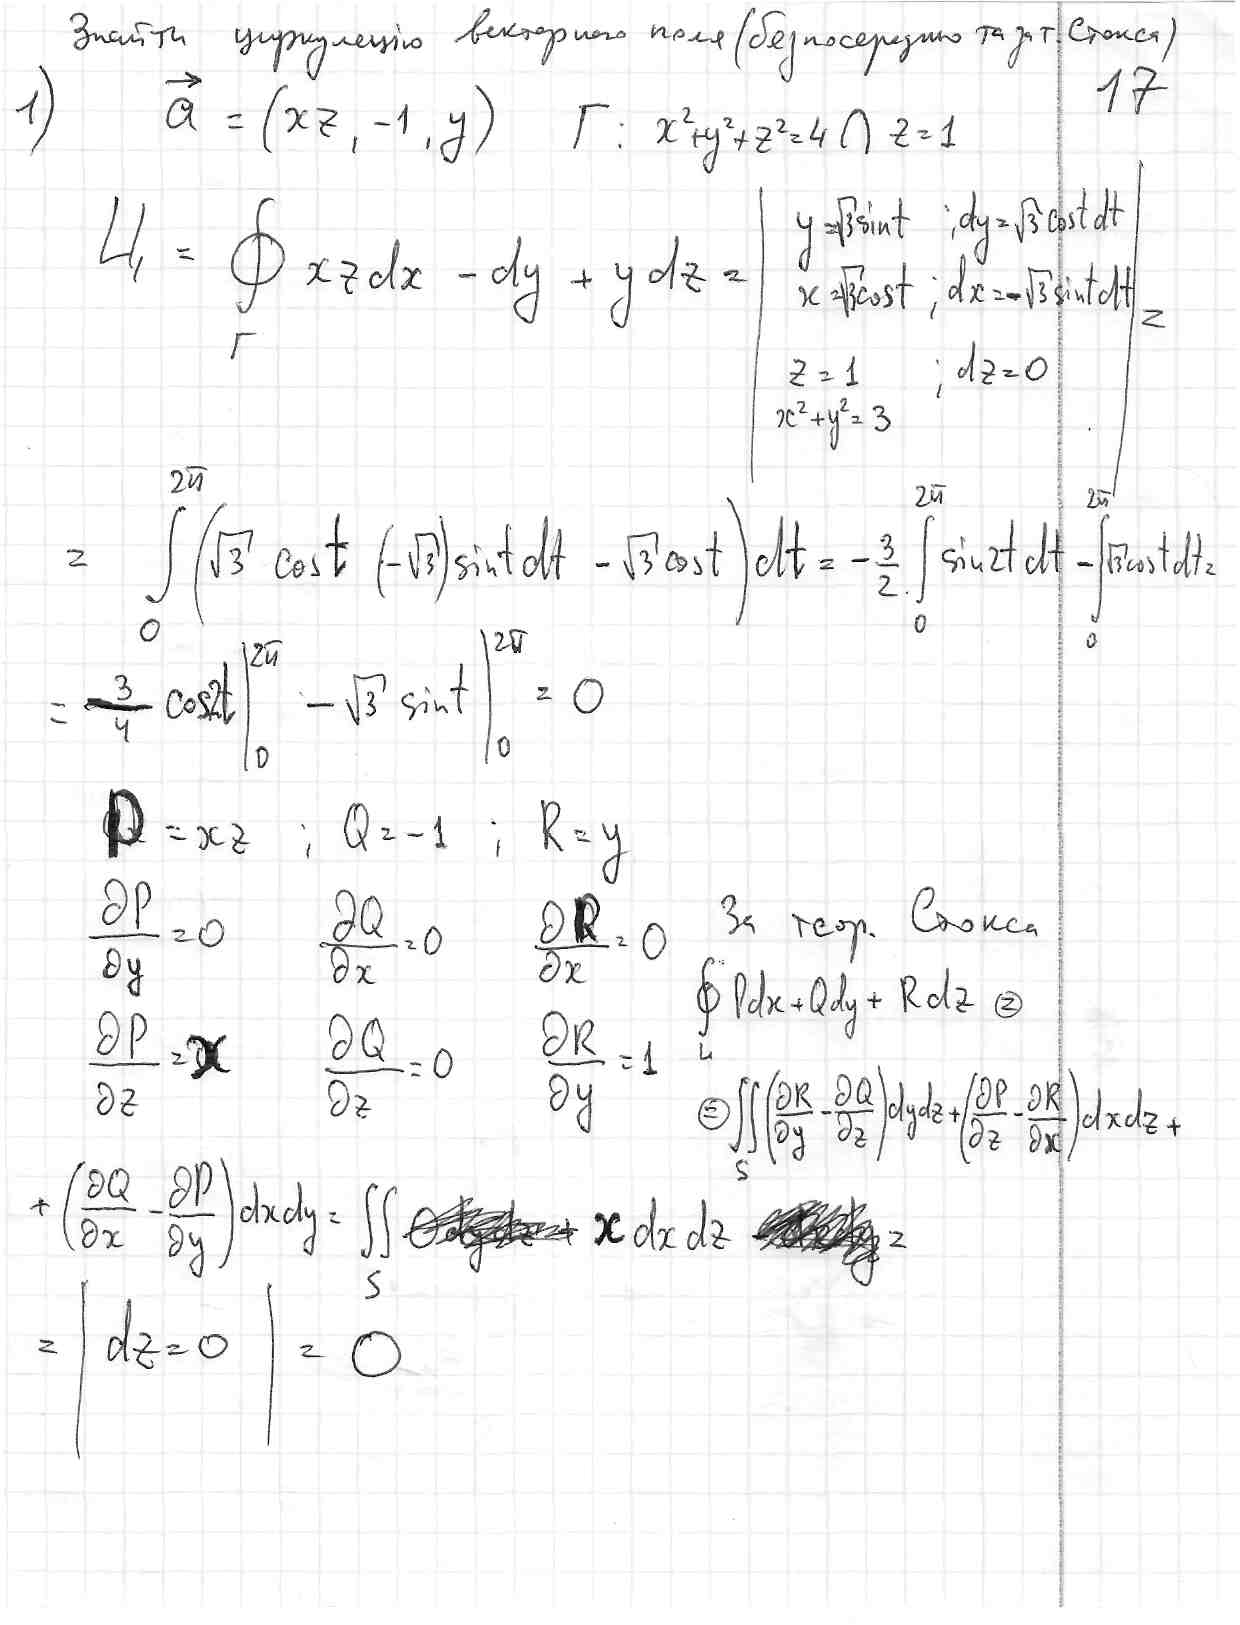 Знайти циркуляцію векторного поля (безпосередньо та за т. Стокса)
17
1) a⃗ = (xz, -1, y) Γ: x²+y²+z²=4 ∩ z=1
Ц = ∮_Γ xzdx - dy + ydz = | y=√3sint ; dy=√3costdt
x=√3cost ; dx=-√3sintdt | =
z=1 ; dz=0
x²+y²=3
= ∫₀^{2π} (√3 cost (-√3)sintdt - √3cost) dt = -3/2 ∫₀^{2π} sin2tdt - ∫₀^{2π} √3costdt =
= 3/4 cos2t |₀^{2π} - √3 sint |₀^{2π} = 0
P = xz ; Q = -1 ; R = y
∂P/∂y = 0 ∂Q/∂x = 0 ∂R/∂x = 0 За теор. Стокса
∮_L Pdx + Qdy + Rdz =
∂P/∂z = x ∂Q/∂z = 0 ∂R/∂y = 1
= ∬_S (∂R/∂y - ∂Q/∂z)dydz + (∂P/∂z - ∂R/∂x)dxdz +
+ (∂Q/∂x - ∂P/∂y)dxdy = ∬_S x dxdz =
= | dz=0 | = 0